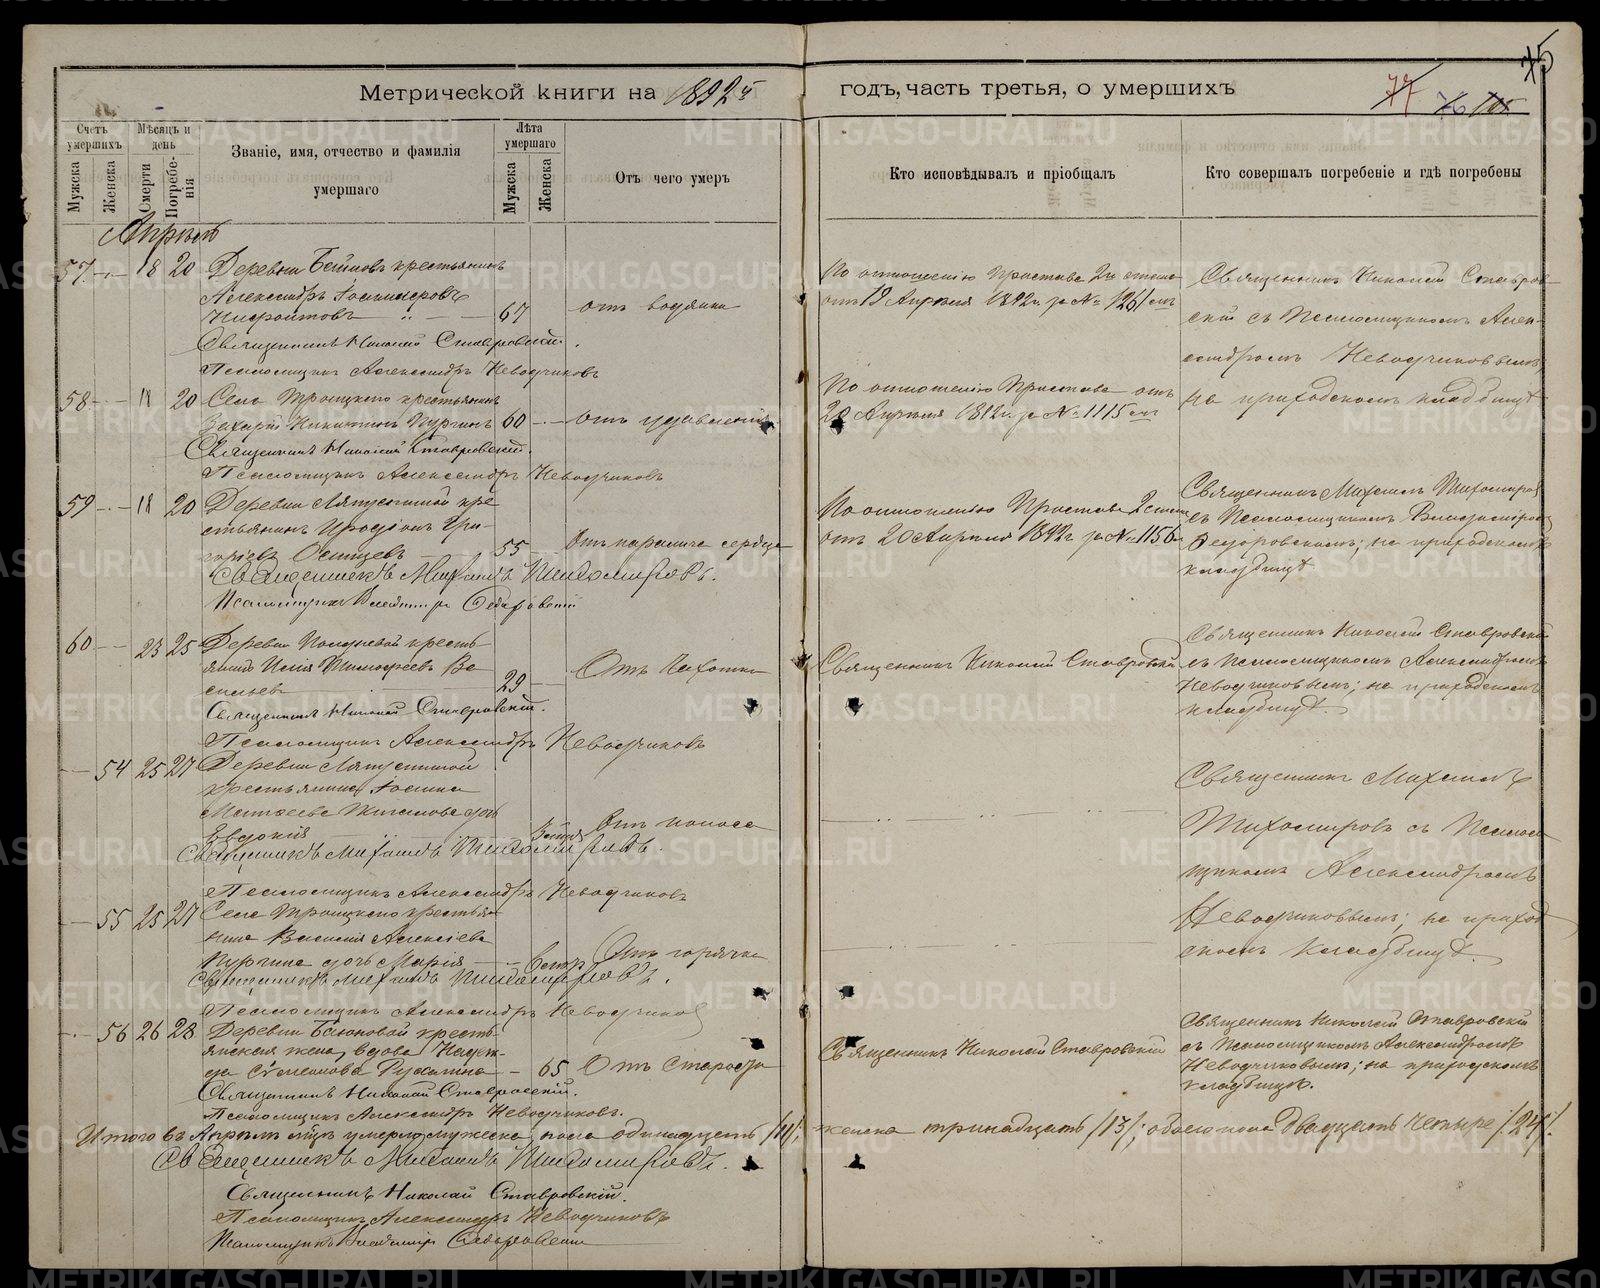 75
Метрической книги на 1892й годъ, часть третья, о умершихъ
77 76
Счетъ умершихъ
Мѣсяцъ и день
Званіе, имя, отчество и фамилія умершаго
Лѣта умершаго
Отъ чего умеръ
Кто исповѣдывалъ и пріобщалъ
Кто совершалъ погребеніе и гдѣ погребены
Мужска
Женска
Смерти
Погребенія
Мужска
Женска
Апрѣль
57 18 20 Деревни крестьянинъ
Александръ
67 отъ водянки
Священникъ Николай Ставровскій.
Псаломщикъ Александръ Неводчиковъ
По отношенію Пристава 2го стана
отъ 19 Апрѣля 1892г. за № 1261мъ
Священникъ Николай Ставров-
скій съ Псаломщикомъ Алек-
сандромъ Неводчиковымъ,
на приходскомъ кладбищѣ
58 18 20 Села Троицкаго крестьянинъ
Захарій Никитинъ Пургинъ 60 отъ удавленія
Священникъ Николай Ставровскій.
Псаломщикъ Александръ Неводчиковъ
По отношенію Пристава отъ
20 Апрѣля 1892г. за № 1115мъ
59 18 20 Деревни Ляпустиной кре
стьянинъ Иродіонъ Гри-
горьевъ 55 Отъ паралича сердца
Священникъ Михаилъ Тихомировъ.
Псаломщикъ Владиміръ Федоровскій
По отношенію Пристава 2 стана
отъ 20 Апрѣля 1892г. за № 1156
Священникъ Михаилъ Тихомировъ
съ Псаломщикомъ Владиміромъ
Федоровскимъ; на приходскомъ
кладбищѣ
60 23 25 Деревни крестья-
янинъ Илія Тимофеевъ Ва
сильевъ 29 Отъ Чахотки
Священникъ Николай Ставровскій.
Псаломщикъ Александръ Неводчиковъ
Священникъ Николай Ставровскій
Священникъ Николай Ставровскій
съ Псаломщикомъ Александромъ
Неводчиковымъ; на приходскомъ
кладбищѣ.
54 25 27 Деревни Ляпустиной
крестьянина
Матѳеева дочь
Евдокія Отъ поноса
Священникъ Михаилъ Тихомировъ.
Псаломщикъ Александръ Неводчиковъ
Священникъ Михаилъ
Тихомировъ съ Псалом
щикомъ Александромъ
Неводчиковымъ; на приход
скомъ кладбищѣ.
55 25 27 Села Троицкаго крестья-
нина Василія Алексіева
Пургина дочь Марія Отъ горячки
Священникъ Михаилъ Тихомировъ.
Псаломщикъ Александръ Неводчиковъ
56 26 28 Деревни крестья-
янская жена, вдова Надеж-
да 65 Отъ Старости
Священникъ Николай Ставровскій.
Псаломщикъ Александръ Неводчиковъ.
Священникъ Николай Ставровскій
Священникъ Николай Ставровскій
съ Псаломщикомъ Александромъ
Неводчиковымъ; на приходскомъ
кладбищѣ.
Итого въ Апрѣлѣ мцѣ умерло мужеска пола одинадцать /11/, женска тринадцать /13/; обоего пола двадцать четыре /24/.
Священникъ Михаилъ Тихомировъ.
Священникъ Николай Ставровскій.
Псаломщикъ Александръ Неводчиковъ
Псаломщикъ Владиміръ Федоровскій
METRIKI.GASO-URAL.RU